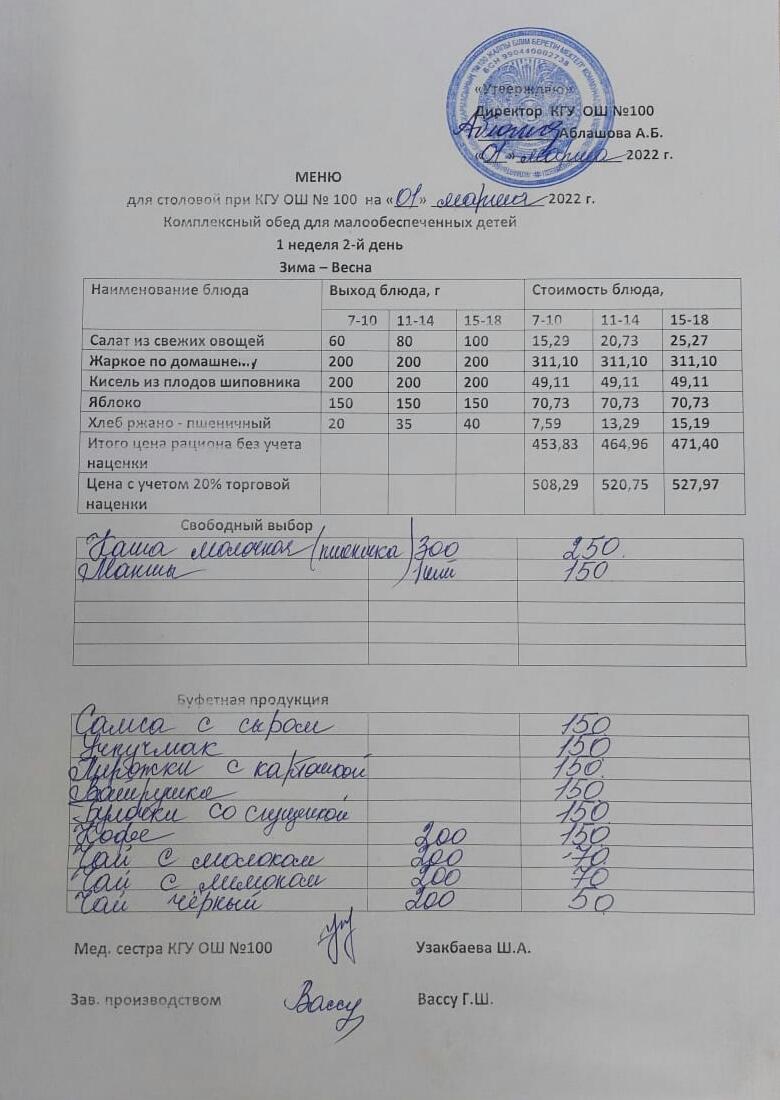 «Утверждаю»
Директор КГУ ОШ №100
Аблашова А.Б.
«01» марта 2022 г.
МЕНЮ
для столовой при КГУ ОШ № 100 на «01» марта 2022 г.
Комплексный обед для малообеспеченных детей
1 неделя 2-й день
Зима – Весна
Наименование блюда Выход блюда, г Стоимость блюда,
7-10 11-14 15-18 7-10 11-14 15-18
Салат из свежих овощей 60 80 100 15,29 20,73 25,27
Жаркое по домашнему 200 200 200 311,10 311,10 311,10
Кисель из плодов шиповника 200 200 200 49,11 49,11 49,11
Яблоко 150 150 150 70,73 70,73 70,73
Хлеб ржано - пшеничный 20 35 40 7,59 13,29 15,19
Итого цена рациона без учета 453,83 464,96 471,40
наценки
Цена с учетом 20% торговой 508,29 520,75 527,97
наценки
Свободный выбор
Каша молочная (пшеничка) 300 250
Манты 1 шт 150
Буфетная продукция
Самса с сыром 150
Учпучмак 150
Пирожки с картошкой 150
Ватрушка 150
Булочки со сгущенкой 150
Кофе 200 150
Чай с молоком 200 70
Чай с лимоном 200 70
Чай чёрный 200 50
Мед. сестра КГУ ОШ №100 Узакбаева Ш.А.
Зав. производством Вассу Вассу Г.Ш.